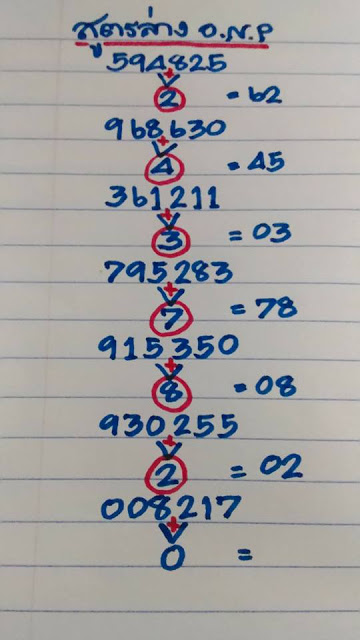 สูตรล่าง O.N.P
594825
+
2 = 62
968630
+
4 = 45
361211
+
3 = 03
795283
+
7 = 78
915350
+
8 = 08
930255
+
2 = 02
008217
+
0 =